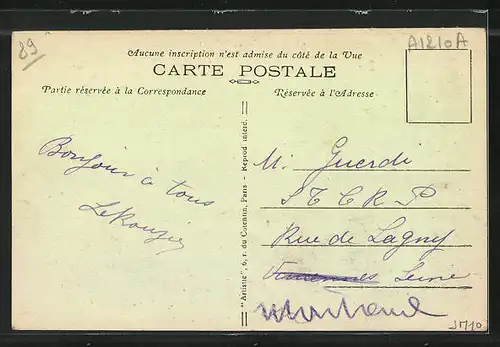 89
A1210A
Aucune inscription n'est admise du côté de la Vue
CARTE POSTALE
Partie réservée à la Correspondance
Réservée à l'Adresse
Bonjour à tous
"Artistic", 6, r. du Cotentin, Paris - Reprod interd.
M. Guerdi
S T C R P
Rue de Lagny
Vincennes Seine